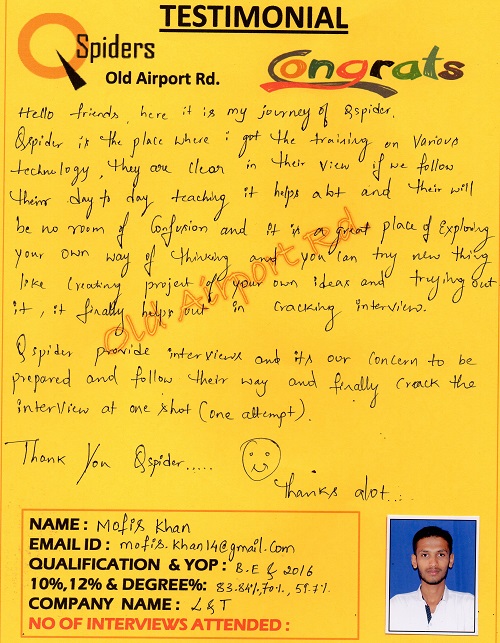 TESTIMONIAL
QSpiders
Old Airport Rd.
Congrats
Hello friends, here it is my journey of Qspider.
Qspider is the place where i got the training on various
technology, they are clear in their view if we follow
their day to day teaching it helps alot and their will
be no room of Confusion and it is a great place of Exploring
your own way of thinking and you can try new thing
like Creating project of your own ideas and trying out
it, it finally helps out in cracking interview.
Old Airport Rd.
Qspider provide interviews and its our concern to be
prepared and follow their way and finally crack the
interview at one shot (one attempt).
Thank You Qspider.....
Thanks alot....
NAME : Mofis Khan
EMAIL ID : mofis.khan14@gmail.com
QUALIFICATION & YOP : B.E & 2016
10%,12% & DEGREE%: 83.84%, 70%, 59.7%
COMPANY NAME : L&T
NO OF INTERVIEWS ATTENDED :